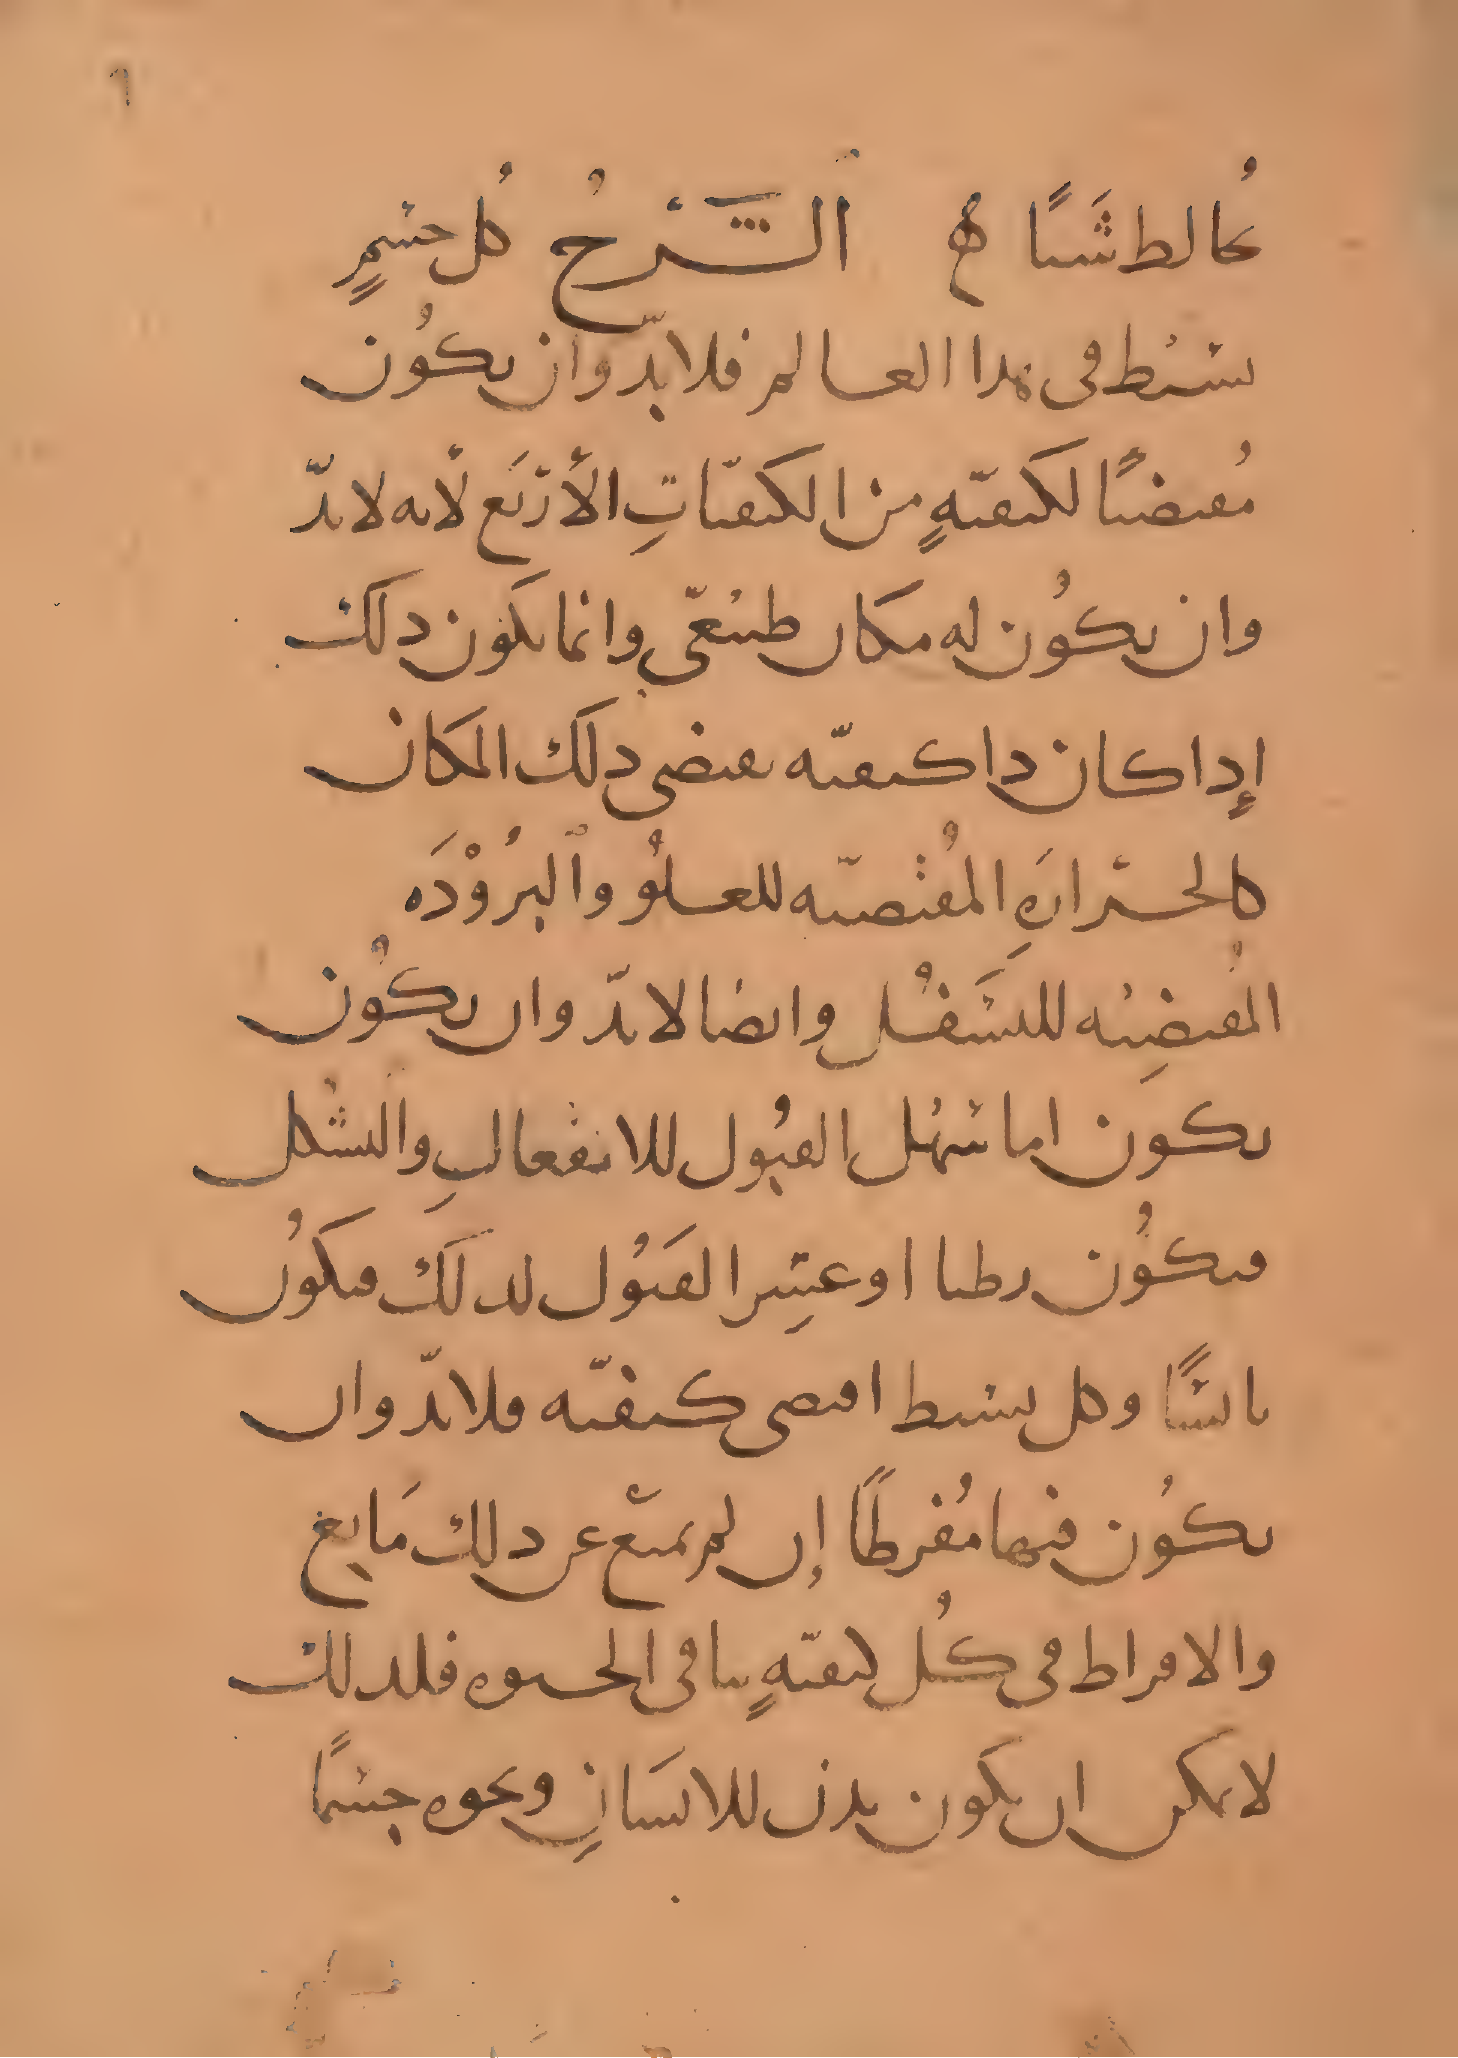 ٦
يخالط شيئًا ھ الشَّرْحُ كل جسمٍ
بسيط في هذا العالم فلا بدّ وان يكُون
مُقتضيًا لكيفيّةٍ من الكيفيّاتِ الأربَع لأنه لا بدّ
وان يكُون له مكان طبيعيّ وانما يكون ذلك
إذا كان ذا كيفيّه يقتضي ذلك المكان
كالحراراهِ المُقتضيّه للعلوُ والبرُوْدَه
المُقتضِيه للسَفُل وايضا لا بدّ وان يكُون
يكون اما سهُل القبُول للانفعالِ والتشكل
فيكُون رطبا او عسِر القبَوُل لذلَك فيكُون
يابسًا وكل بسيط اقتضى كيفيّه فلا بدّ وان
يكُون فيها مُفرطًا إن لم يمنع عن ذلك مَا يع
والافراط في كُل كيفيّهٍ ينافي الحيوه فلذلك
لا يمكن ان يكون بدن للانسَانِ ونحوه جسمًا